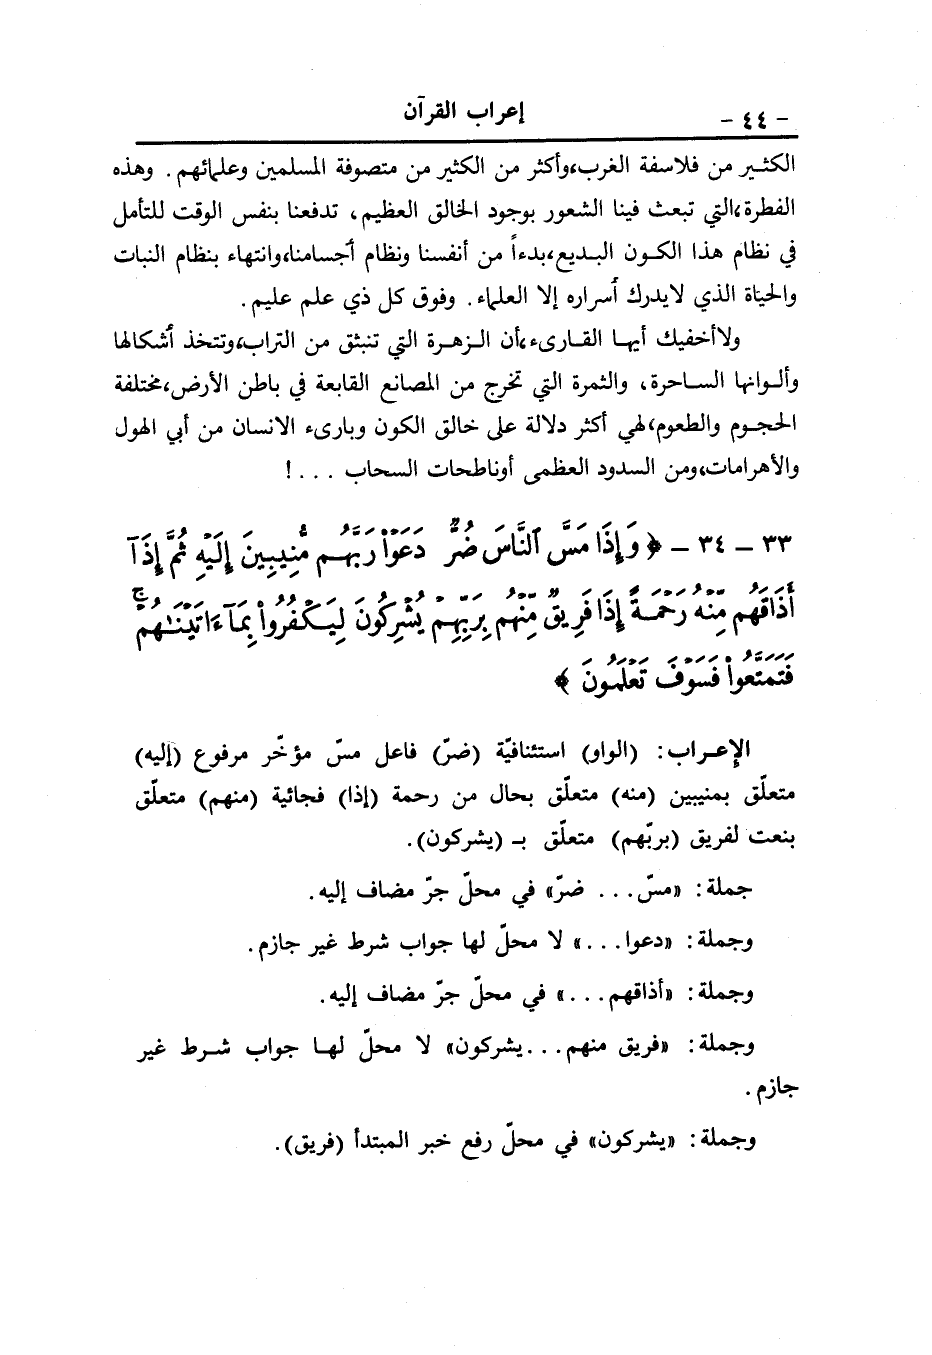 - ٤٤ - إعراب القرآن
الكثـير من فلاسفة الغرب،وأكثر من الكثير من متصوفة المسلمين وعلمائهم. وهذه
الفطرة،التي تبعث فينا الشعور بوجود الخالق العظيم، تدفعنا بنفس الوقت للتأمل
في نظام هذا الكـون البـديع،بدءاً من أنفسنا ونظام أجسامنا،وانتهاء بنظام النبات
والحياة الذي لايدرك أسراره إلا العلماء. وفوق كل ذي علم عليم.
ولاأخفيك أيهـا القـارىء،أن الـزهـرة التي تنبثق من التراب،وتتخذ أشكالها
وألـوانها السـاحرة، والثمرة التي تخرج من المصانع القابعة في باطن الأرض،مختلفة
الحجـوم والطعوم،لهي أكثر دلالة على خالق الكون وبارىء الانسان من أبي الهول
والأهرامات،ومن السدود العظمى أوناطحات السحاب ...!
٣٣ - ٣٤ - ﴿ وَإِذَا مَسَّ ٱلنَّاسَ ضُرٌّ دَعَوۡاْ رَبَّهُم مُّنِيبِينَ إِلَيۡهِ ثُمَّ إِذَآ
أَذَاقَهُم مِّنۡهُ رَحۡمَةً إِذَا فَرِيقٌ مِّنۡهُم بِرَبِّهِمۡ يُشۡرِكُونَ لِيَكۡفُرُواْ بِمَآ ءَاتَيۡنَٰهُمۡۚ
فَتَمَتَّعُواْ فَسَوۡفَ تَعۡلَمُونَ ﴾
الإعـراب: (الواو) استئنافيّة (ضرّ) فاعل مسّ مؤخّر مرفوع (إليه)
متعلّق بمنيبين (منه) متعلّق بحال من رحمة (إذا) فجائية (منهم) متعلّق
بنعت لفريق (بربّهم) متعلّق بـ (يشركون).
جملة: «مسّ... ضرّ» في محلّ جرّ مضاف إليه.
وجملة: «دعوا...» لا محلّ لها جواب شرط غير جازم.
وجملة: «أذاقهم...» في محلّ جرّ مضاف إليه.
وجملة: «فريق منهم...يشركون» لا محلّ لهـا جواب شـرط غير
جازم.
وجملة: «يشركون» في محلّ رفع خبر المبتدأ (فريق).